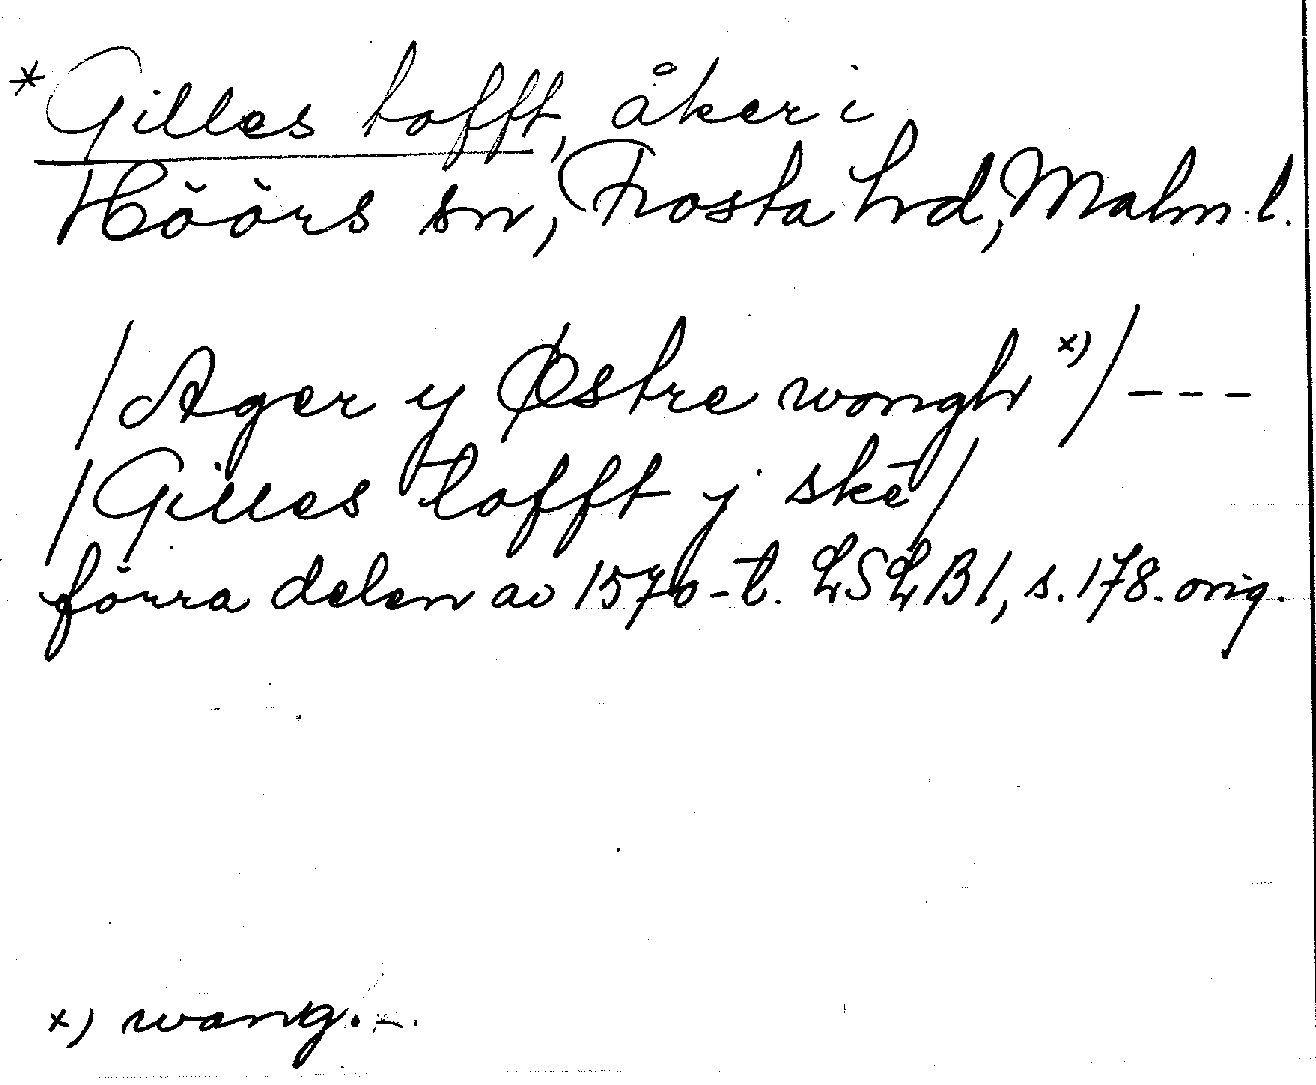 *Gilles tofft, åker i
Höörs sn, Frosta hd, Malm. l.
/Ager y Østre wongh x)/ ---
/Gilles tofft j skē/
förra delen av 1570-t. LSLB1, s. 178. orig.
x) wang.